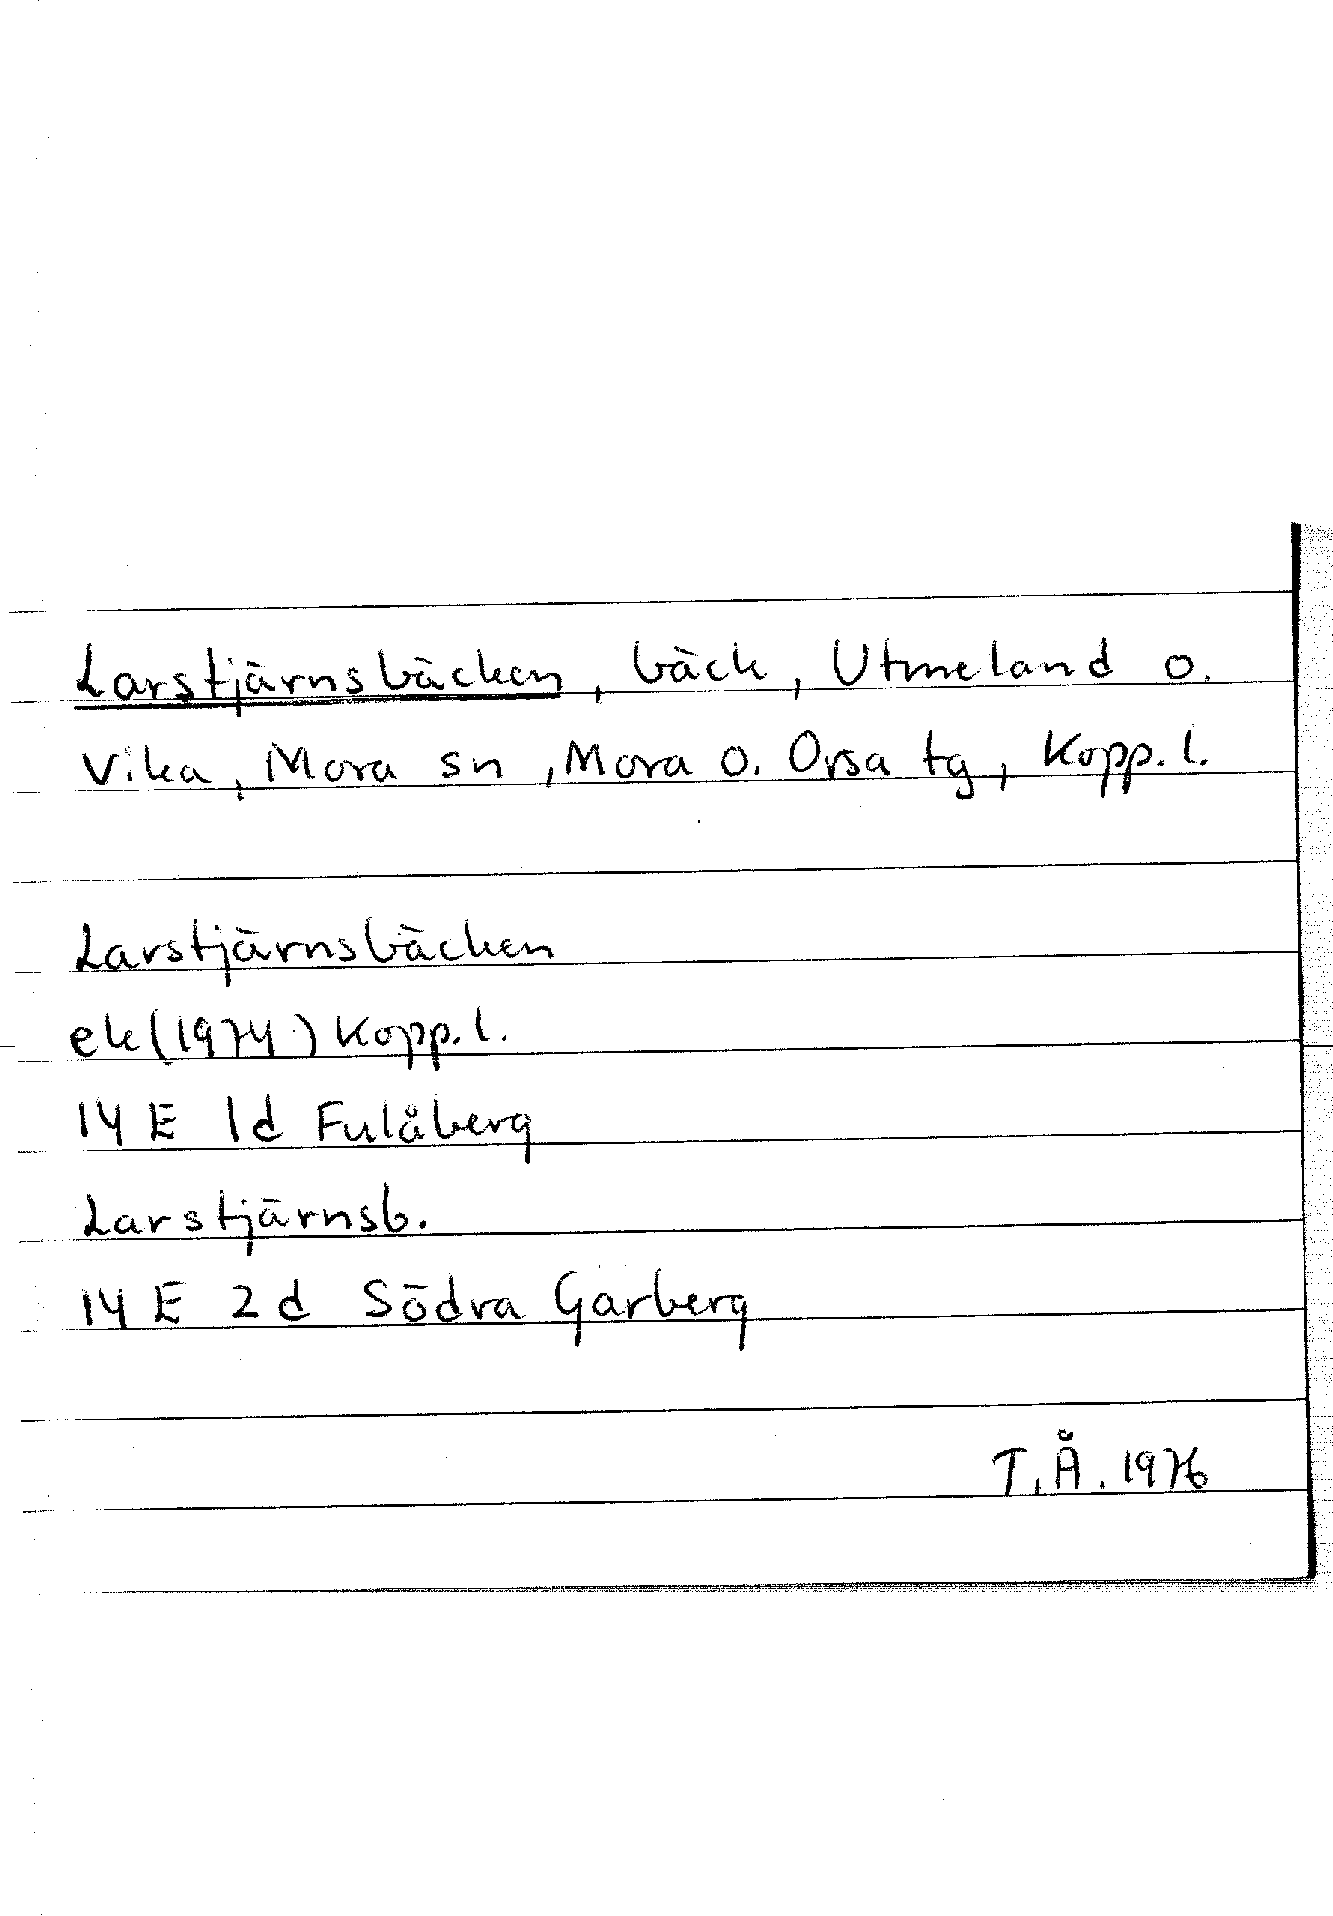 Larstjärnsbäcken, bäck, Utmeland o.
Vika, Mora sn, Mora o. Orsa tg, Kopp. l.
Larstjärnsbäcken
ek (1974) Kopp. l.
14 E 1d Fulåberg
Larstjärnsb.
14 E 2d Södra Garberg
T.Å. 1976